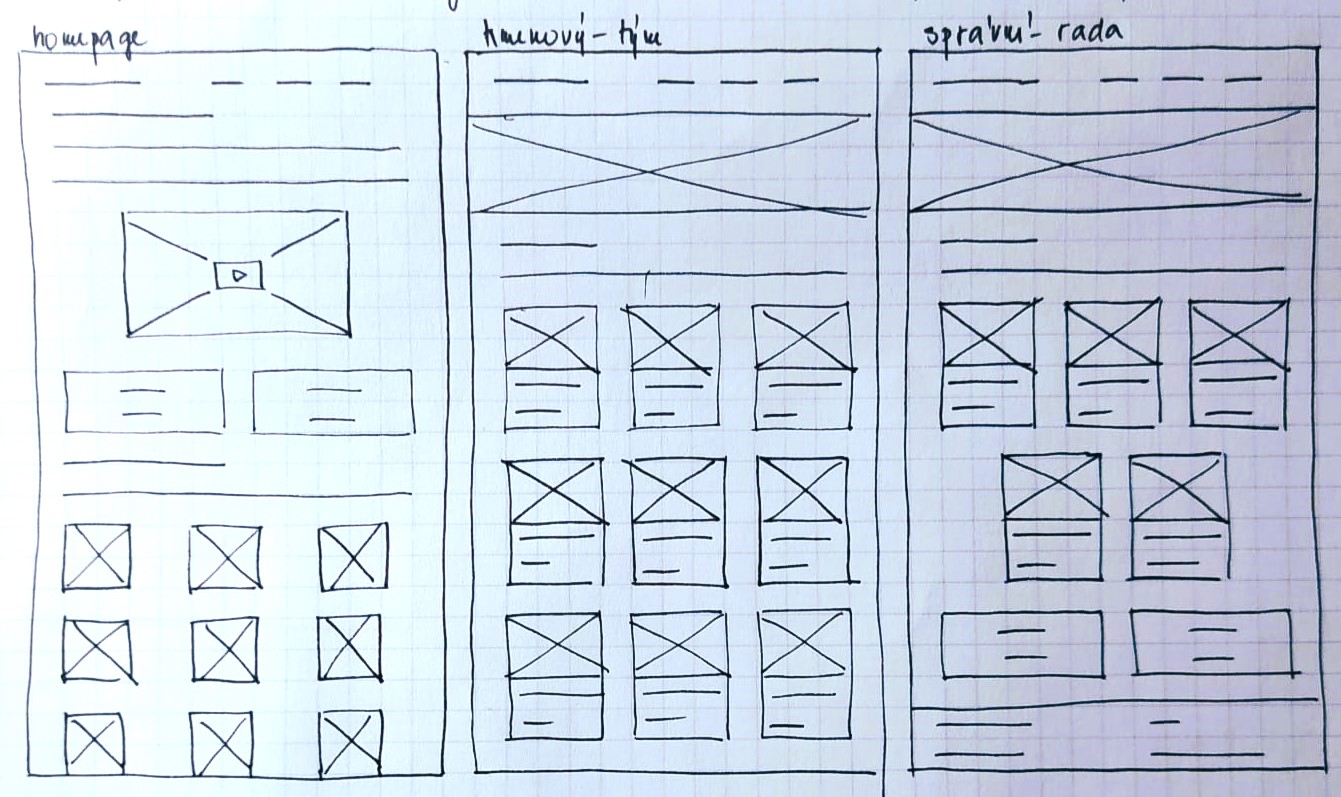 homepage
kmenový-tým
správní-rada